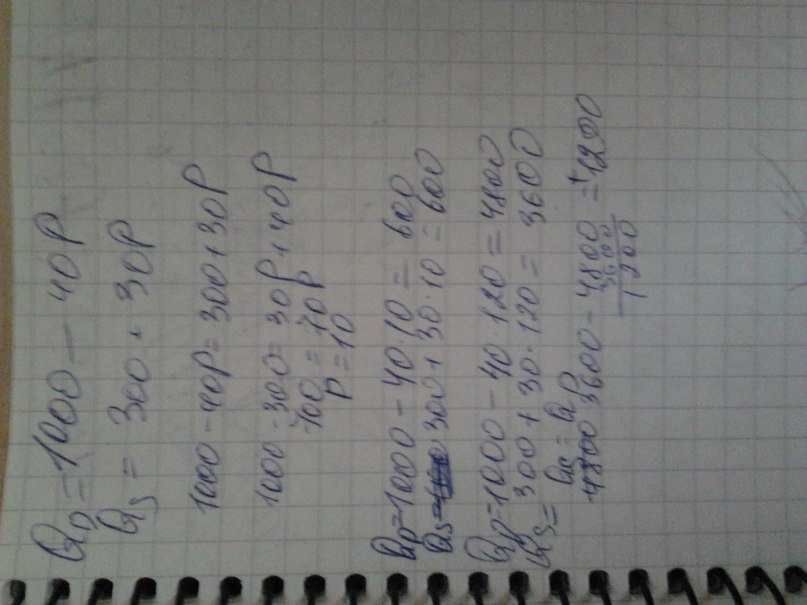 QD = 1000 - 40P
QS = 300 + 30P
1000 - 40P = 300 + 30P
1000 - 300 = 30P + 40P
700 = 70P
P = 10
QD = 1000 - 40 · 10 = 600
QS = 300 + 30 · 10 = 600
QD = 1000 - 40 · 120 = 4800
QS = 300 + 30 · 120 = 3600
4800 3600 - 4800 = 1200
3600
1200